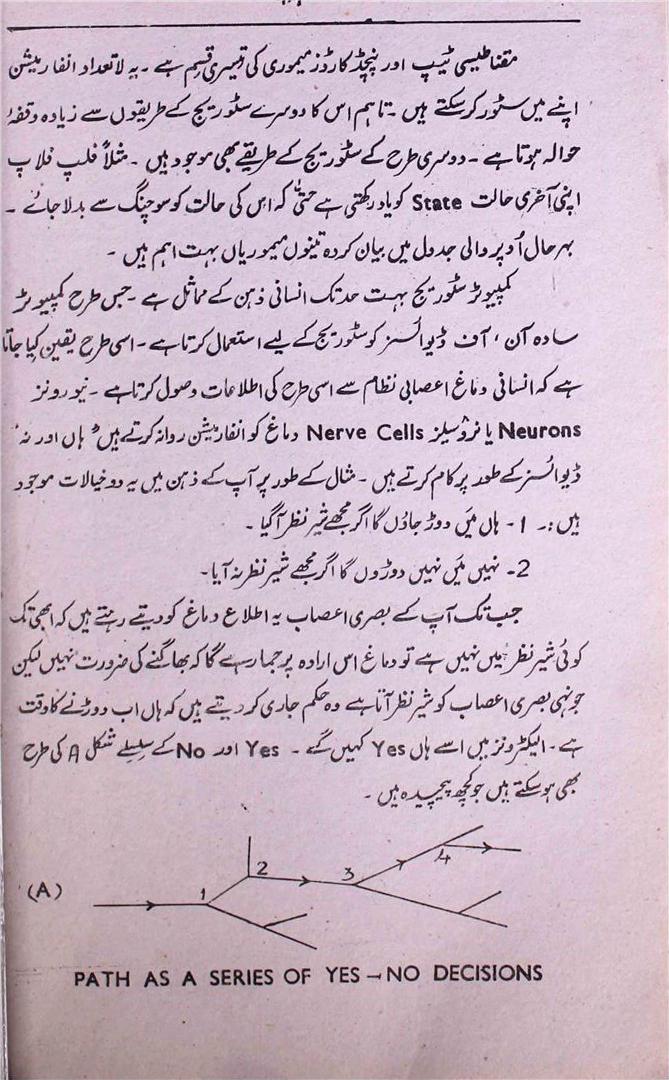 مقناطیسی ٹیپ اور پنچڈ کارڈز میموری کی تیسری قسم ہے ۔ یہ لاتعداد انفارمیشن
اپنے میں سٹور کر سکتے ہیں ۔ تاہم اس کا دوسرے سٹوریج کے طریقوں سے زیادہ وقفۂ
حوالہ ہوتا ہے ۔ دوسری طرح کے سٹوریج کے طریقے بھی موجود ہیں ۔ مثلاً فلپ فلاپ
اپنی آخری حالت State کو یاد رکھتی ہے حتیٰ کہ اس کی حالت کو سوچنگ سے بدلا جائے ۔
بہر حال اُوپر والی جدول میں بیان کردہ تینوں میموریاں بہت اہم ہیں ۔
کمپیوٹر سٹوریج بہت حد تک انسانی ذہن کے مماثل ہے ۔ جس طرح کمپیوٹر
سادہ آن ، آف ڈیوائسز کو سٹوریج کے لیے استعمال کرتا ہے ۔ اسی طرح یقین کیا جاتا
ہے کہ انسانی دماغ اعصابی نظام سے اسی طرح کی اطلاعات وصول کرتا ہے ۔ نیورونز
Neurons یا نروسیلز Nerve Cells دماغ کو انفارمیشن روانہ کرتے ہیں ۔ ہاں اور نہ
ڈیوائسز کے طور پر کام کرتے ہیں ۔ مثال کے طور پر آپ کے ذہن میں یہ دو خیالات موجود
ہیں :۔ 1 - ہاں میَں دوڑ جاؤں گا اگر مجھے شیر نظر آ گیا ۔
2 - نہیں میَں نہیں دوڑوں گا اگر مجھے شیر نظر نہ آیا ۔
جب تک آپ کے بصری اعصاب یہ اطلاع دماغ کو دیتے رہتے ہیں کہ ابھی تک
کوئی شیر نظر میں نہیں ہے تو دماغ اس ارادہ پر جما رہے گا کہ بھاگنے کی ضرورت نہیں لیکن
جونہی بصری اعصاب کو شیر نظر آتا ہے وہ حکم جاری کر دیتے ہیں کہ ہاں اب دوڑنے کا وقت
ہے ۔ الیکٹرونز میں اسے ہاں Yes کہیں گے ۔ Yes اور No کے سلسلے شکل A کی طرح
بھی ہو سکتے ہیں جو کچھ پیچیدہ ہیں ۔
(A) 1 2 3 4
PATH AS A SERIES OF YES – NO DECISIONS